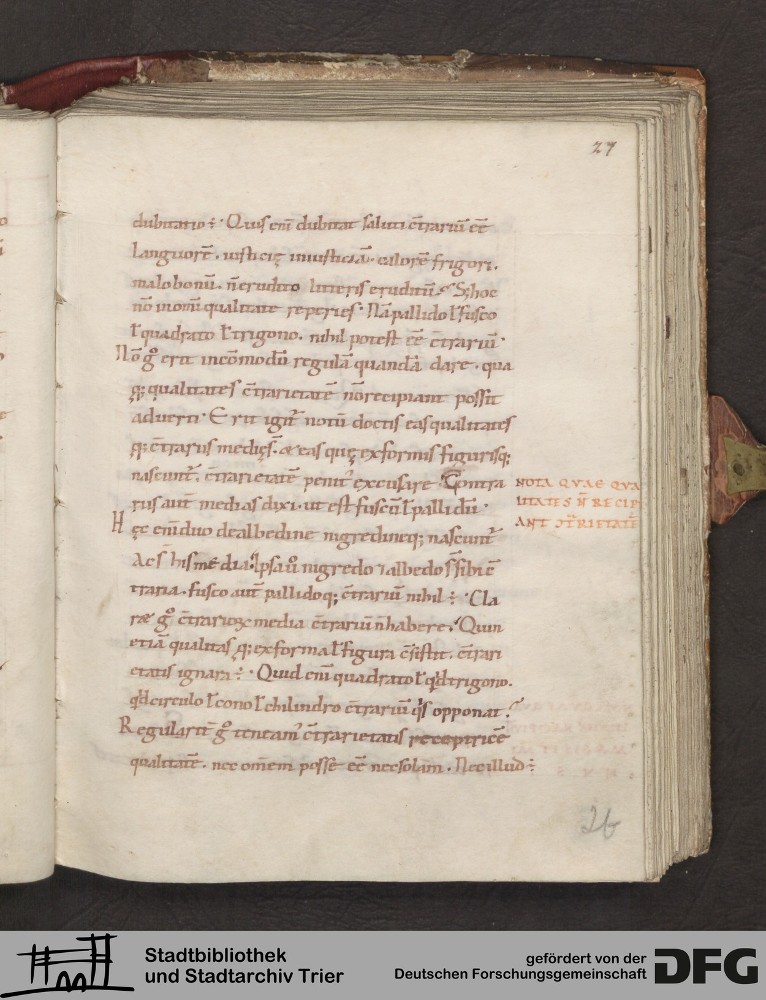 27
dubitatio÷· Quis eni̅ dubitat saluti c̅trariu̅ ee̅
languore̅· iusticię iniusticia̅· calore̅ frigori·
malo bonu̅· n̅ erudito litteris eruditu̅· S; hoc
no̅ in omi̅ qualitate reperies· Na̅ pallido ł fusco
ł quadrato ł trigono· nihil potest ee̅ c̅trariu̅·
No̅ g° erit inco̅modu̅ regula̅ quanda̅ dare· qua
q; qualitates c̅trarietate̅ no̅ recipiant possit
adverti· Erit igit̅ notu̅ doctis eas qualitates
q; c̅trariis medięs· & eas quę ex formis figurisq;
nascunt̅· c̅trarietate̅ penit' excusare· Contra
riis aut̅ medias dixi· ut est fuscu̅ ł pallidu̅·
Hęc eni̅ duo de albedine nigredineq; nascunt̅
Ac s̅ his media· Ipsa u̅ nigredo 7 albedo s̅ sibi c̅
traria· fusco aut̅ pallidoq; c̅trariu̅ nihil÷· Cla
ræ g° c̅trarioꝝ media c̅trariu̅ n̅ habere· Quin
etia̅ qualitas q; ex forma ł figura c̅sistit· c̅trari
etatis ignara÷· Quid eni̅ quadrato ł qd̅ trigono·
qd̅ circulo ł cono ł chilindro c̅trariu̅ qi̅s opponat·
Regularit̅ g° teneam' c̅trarietatis receptrice̅
qualitate̅· nec omnem posse ee̅ nec solam· Nec illud÷
NOTA QVAE QVA
LITATES N̅ RECIP
ANT ↄT̅RIETATE̅
26
Stadtbibliothek
und Stadtarchiv Trier
gefördert von der
Deutschen Forschungsgemeinschaft
DFG